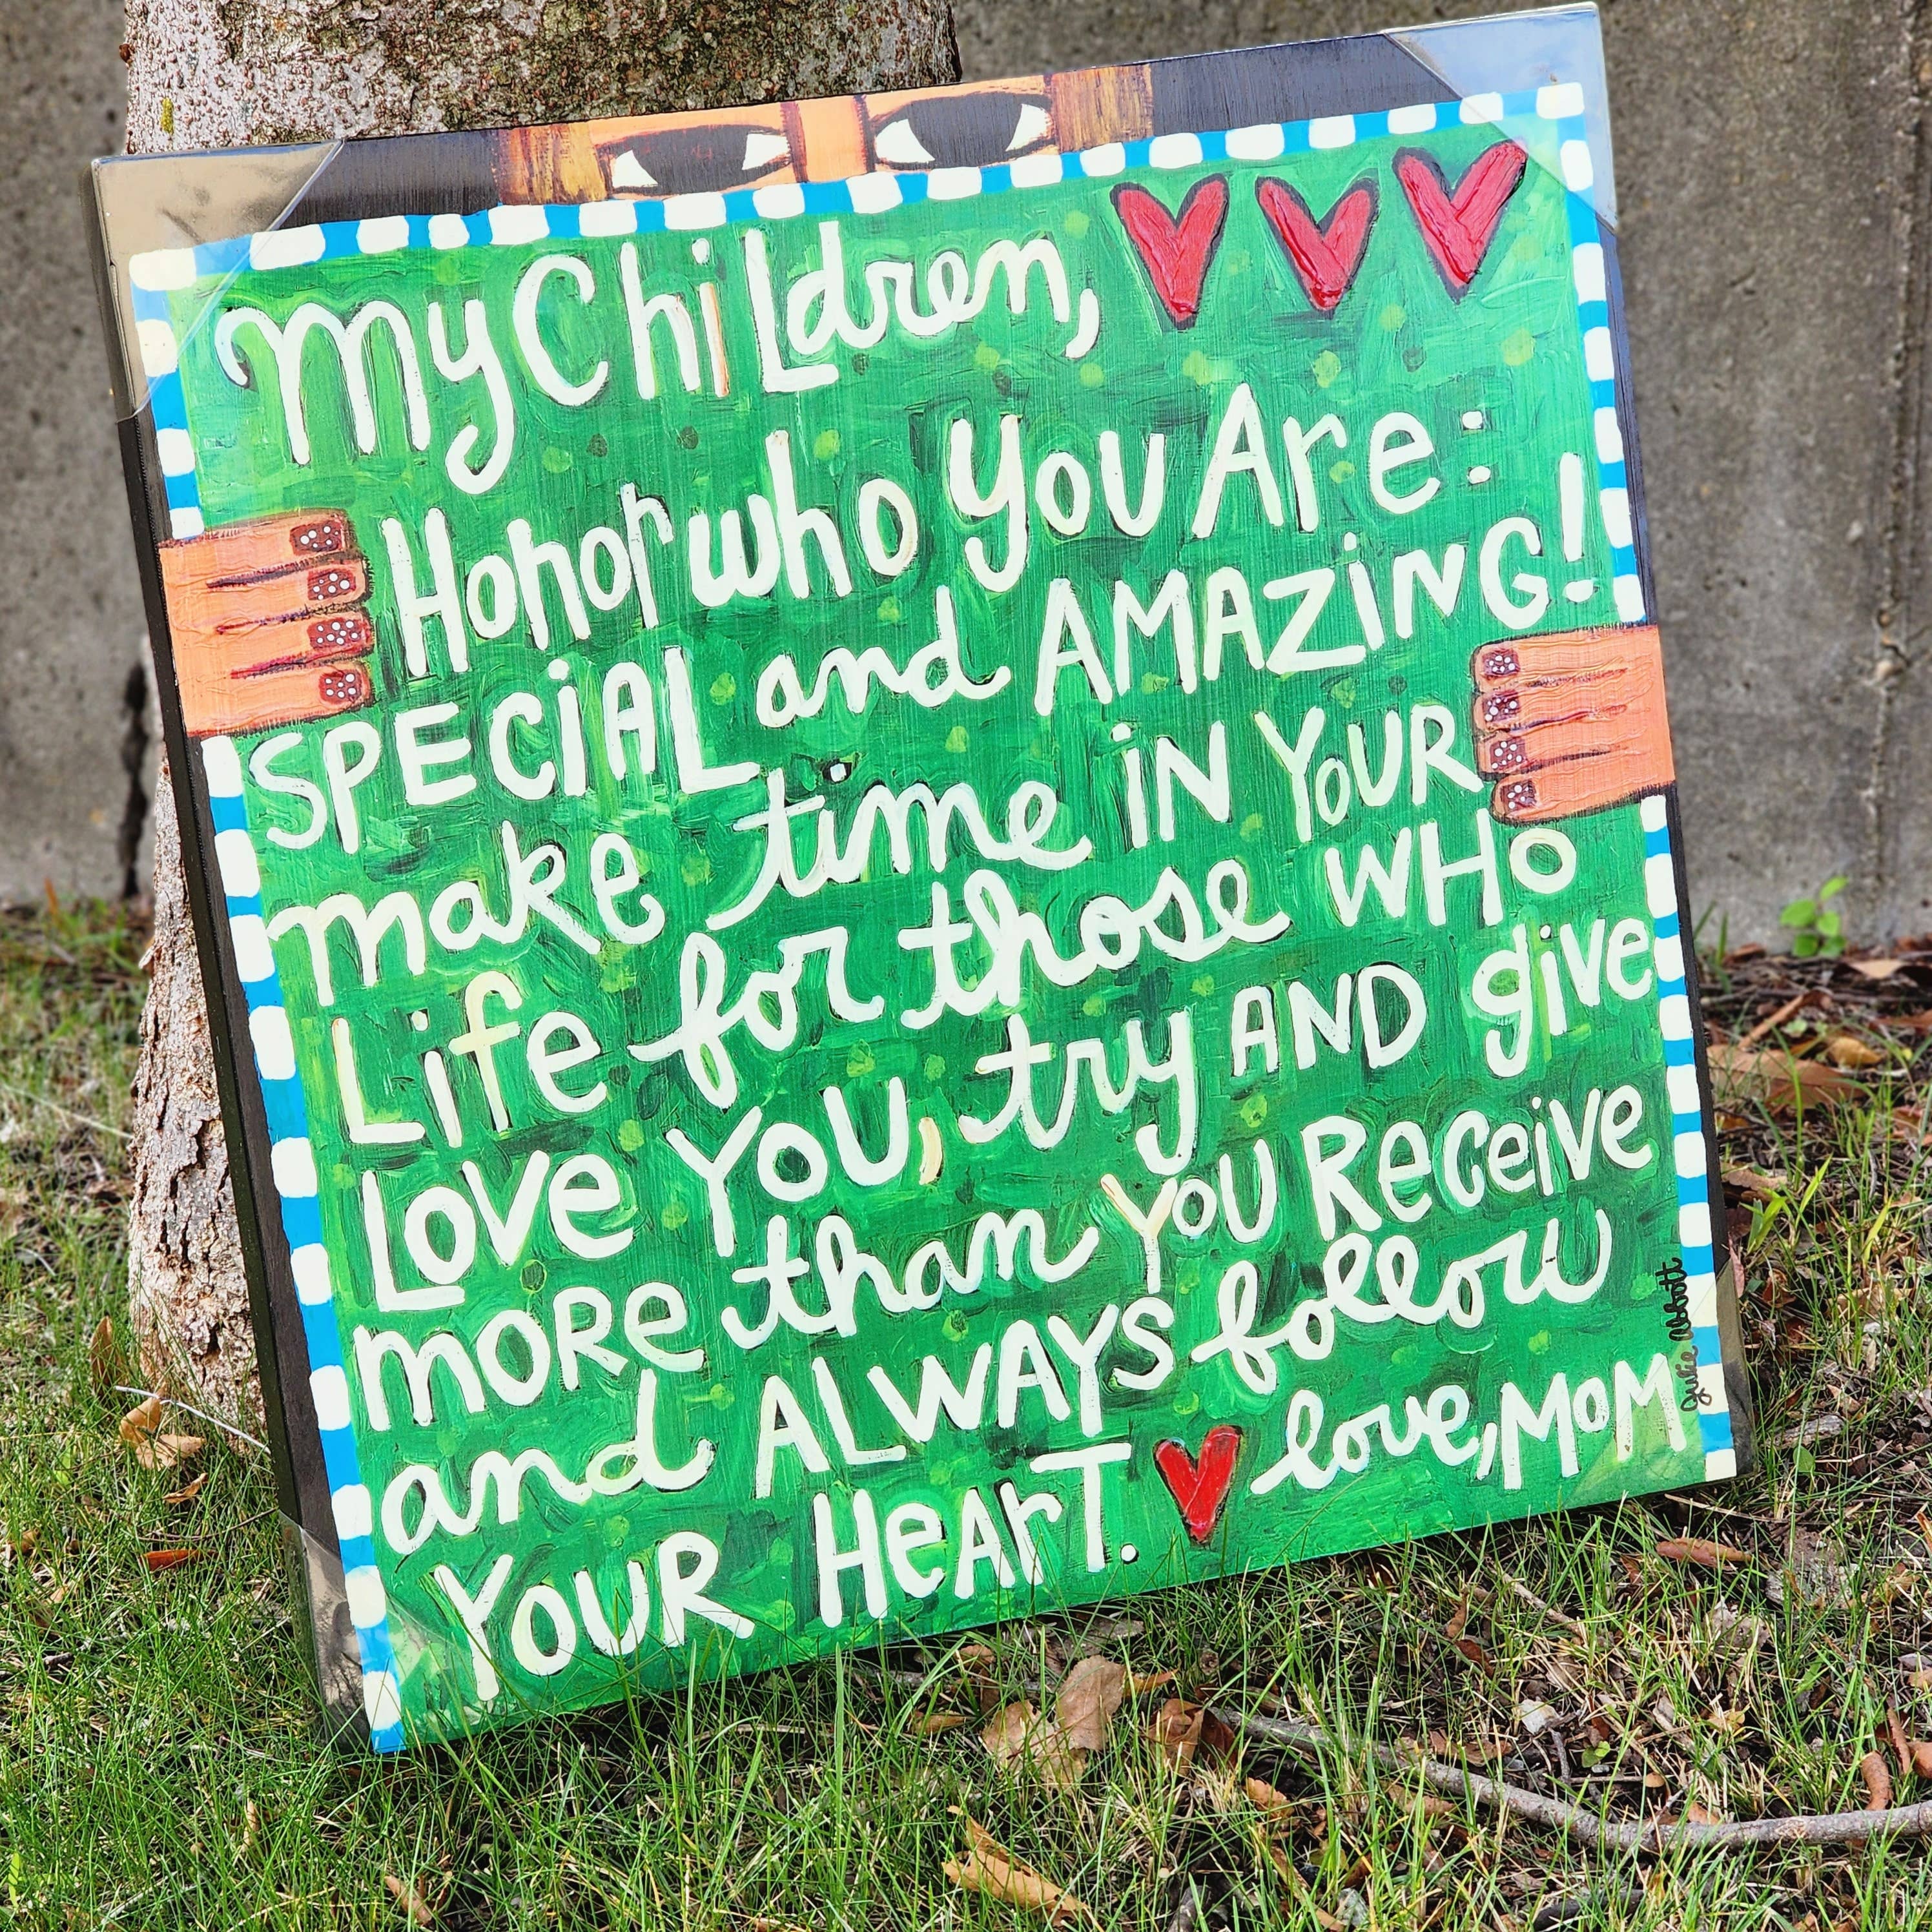 My Children,
Honor who you Are:
SPECiAL and AMAZiNG!
make time iN YOUR
Life for those WHO
LOVe YOU, try AND give
MORe than YOU Receive
and ALWAYS follow
YOUR HeArT. love, MoM
Julie Abbott